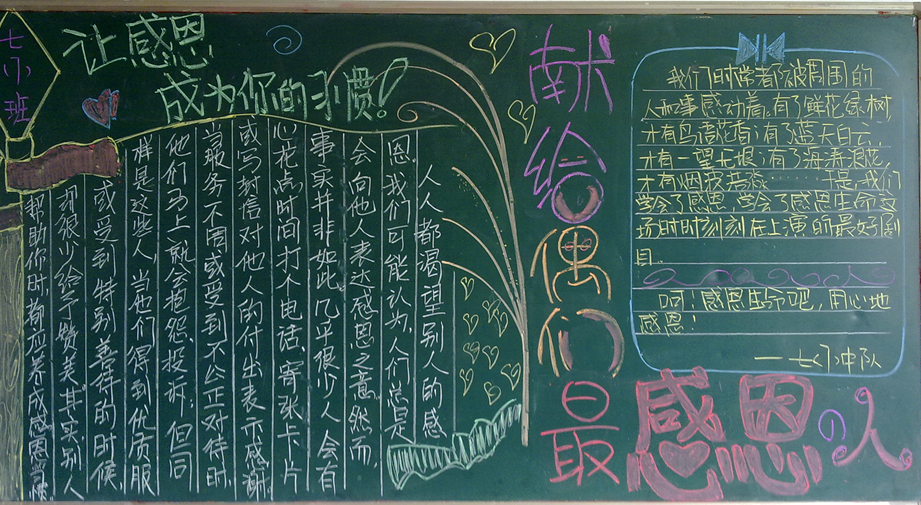 七(7)班
让感恩
成为你的习惯!
人人都渴望别人的感
恩。我们可能认为,人们总是
会向他人表达感恩之意。然而,
事实并非如此。几乎很少人会有
心花点时间打个电话、寄张卡片
或写封信对他人的付出表示感谢
当服务不周或受到不公正对待时,
他们马上就会抱怨、投诉;但同
样是这些人,当他们得到优质服
或受到特别善待的时候,
却很少给予赞美。其实,别人
帮助你时,都应养成感恩习惯
献给偶们
最感恩の人
我们时常都被周围的
人和事感动着。有了鲜花绿树,
才有鸟语花香;有了蓝天白云,
才有一望无垠;有了海涛浪花,
才有烟波浩淼……于是,我们
学会了感恩,学会了感恩生命这
场时时刻刻在上演的最好剧
目。
呵!感恩生命吧,用心地
感恩!
——七(7)中队